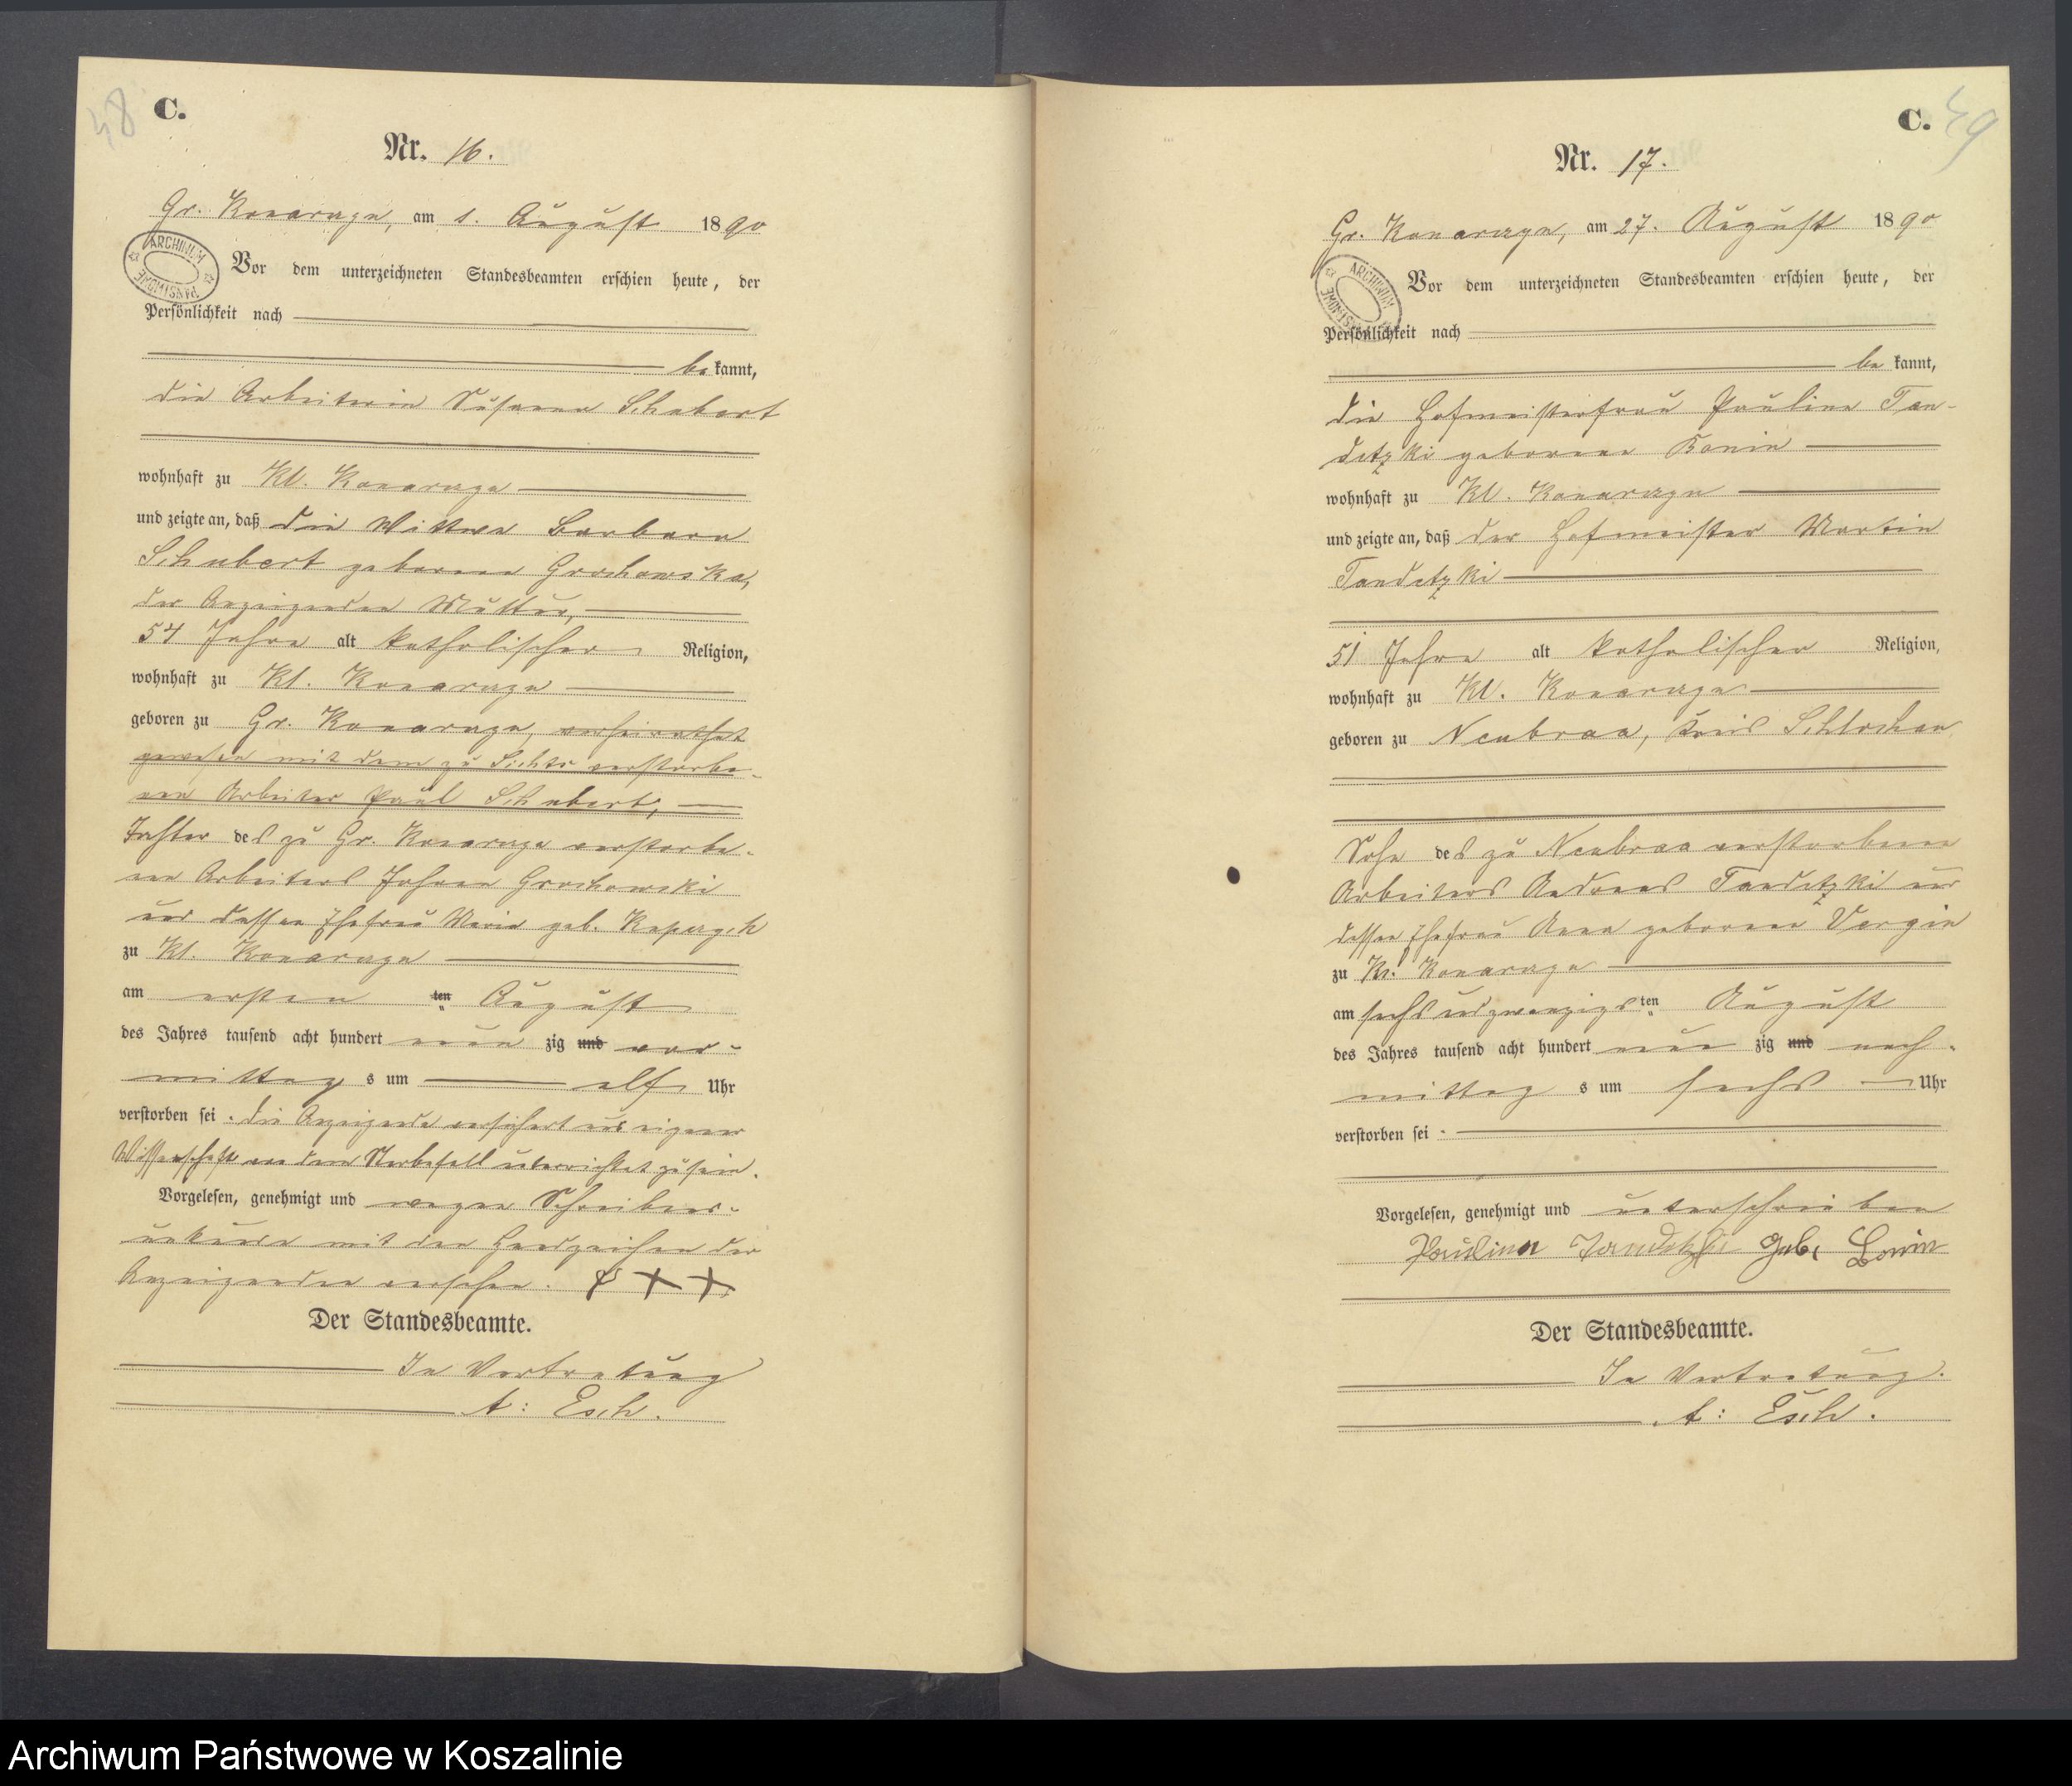 48
C.
Nr. 16.
Gr. Konarczyn, am 1. August 1890
ARCHIWUM PAŃSTWOWE
Vor dem unterzeichneten Standesbeamten erschien heute, der
Persönlichkeit nach
bekannt,
die Arbeiterin Susanna Schubert
wohnhaft zu Kl. Konarczyn
und zeigte an, daß die Wittwe Barbara
Schubert geborene Grochowska,
der Anzeigenden Mutter,
54 Jahre alt katholischer Religion,
wohnhaft zu Kl. Konarczyn
geboren zu Gr. Konarczyn, verheirathet
gewesen mit dem zu verstorbe-
nen Arbeiter Paul Schubert,
Tochter des zu Gr. Konarczyn verstorbe-
nen Arbeiters Johann Grochowski
und dessen Ehefrau Maria geb.
zu Kl. Konarczyn
am ersten ten August
des Jahres tausend acht hundert neun zig und vor-
mittags um elf Uhr
verstorben sei. Die Anzeigende versichert aus eigener
Wissenschaft von dem Sterbefall unterrichtet zu sein.
Vorgelesen, genehmigt und wegen Schreibens-
unkunde mit den Handzeichen der
Anzeigenden versehen. + + +
Der Standesbeamte.
In Vertretung
A: Esch.
49
C.
Nr. 17.
Gr. Konarczyn, am 27. August 1890
ARCHIWUM PAŃSTWOWE
Vor dem unterzeichneten Standesbeamten erschien heute, der
Persönlichkeit nach
bekannt,
die Hofmeisterfrau Pauline Tan-
detzki geborene Bonin
wohnhaft zu Kl. Konarczyn
und zeigte an, daß der Hofmeister Martin
Tandetzki
51 Jahre alt katholischer Religion,
wohnhaft zu Kl. Konarczyn
geboren zu Neubraa, Kreis Schlochau
Sohn des zu Neubraa verstorbenen
Arbeiters Andreas Tandetzki und
dessen Ehefrau Anna geborene Vergin
zu Kl. Konarczyn
am sechsundzwanzigsten August
des Jahres tausend acht hundert neun zig und nach-
mittags um sechs Uhr
verstorben sei.
Vorgelesen, genehmigt und unterschrieben
Paulina Tandetzki geb. Bonin
Der Standesbeamte.
In Vertretung.
A: Esch.
Archiwum Państwowe w Koszalinie